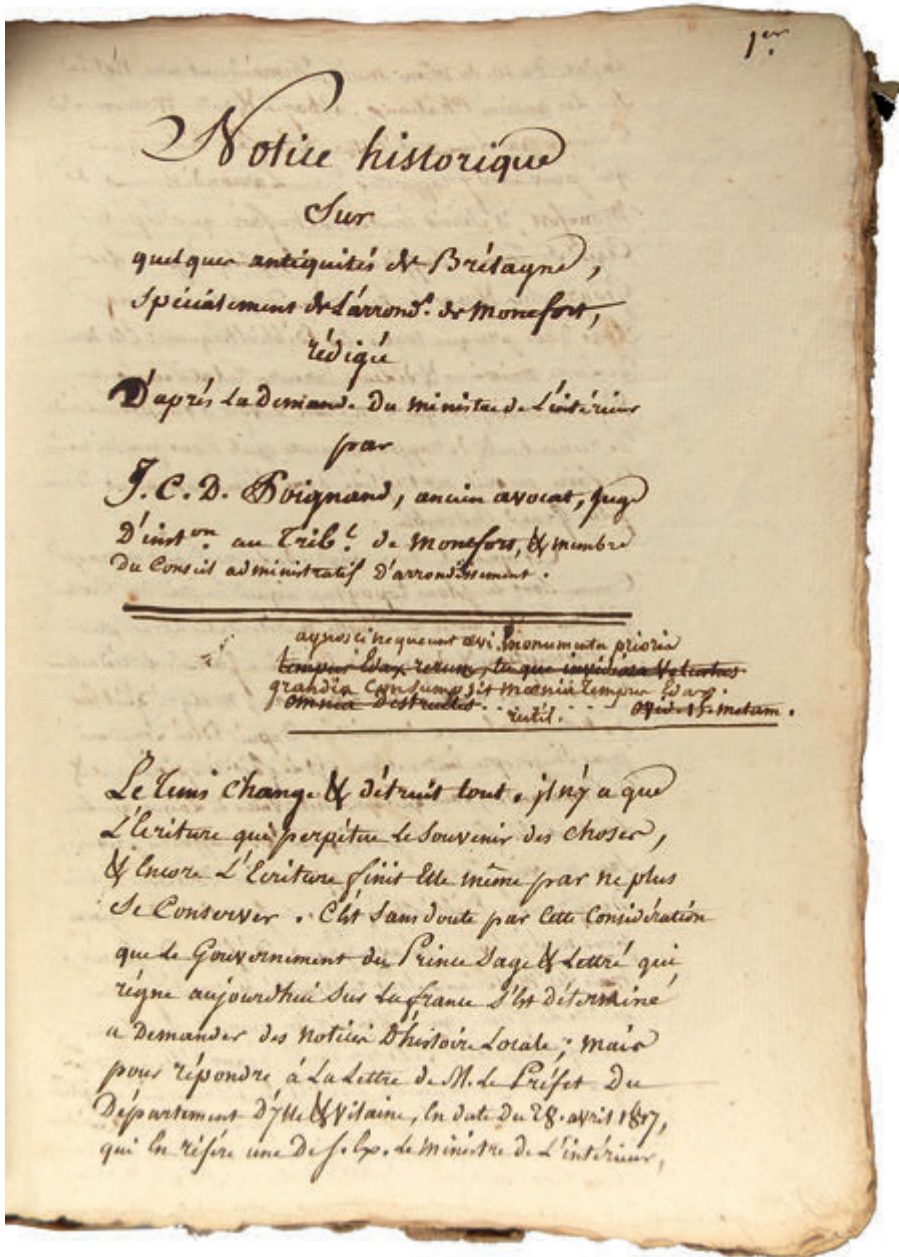 1er.
Notice historique
Sur
quelques antiquités de Brétagne,
spécialement de L'arrond.t de Montfort,
rédigée
D'après La Demande Du ministre de L'intérieur
par
J. C. D. Poignand, ancien avocat, juge
D'inst.on au Trib.l de Montfort, & membre
Du Conseil administratif D'arrondissement.
agnosci nequeunt ævi monumenta prioris
tempus Edax rerum, tu que invidiosa Vetustas
grandia consumpsit mœnia tempus Edax.
omnia destruitis . . . . . . . ovid. 15. metam.
rutil.
Le tems change & détruit tout. il n'y a que
L'Ecriture qui perpétue le souvenir des choses,
& Encore L'Ecriture finit Elle même par ne plus
se Conserver. C'est Sans doute par Cette Considération
que Le Gouvernement du Prince Sage & Lettré qui
règne aujourdhui Sur La france S'est déterminé
a Demander des notices D'histoire Locale; mais
pour répondre à La Lettre de M. Le Préfet Du
Département D'ylle & Vilaine, En date Du 28. avril 1817,
qui En réfère une De S. Ex. Le Ministre de L'intérieur,